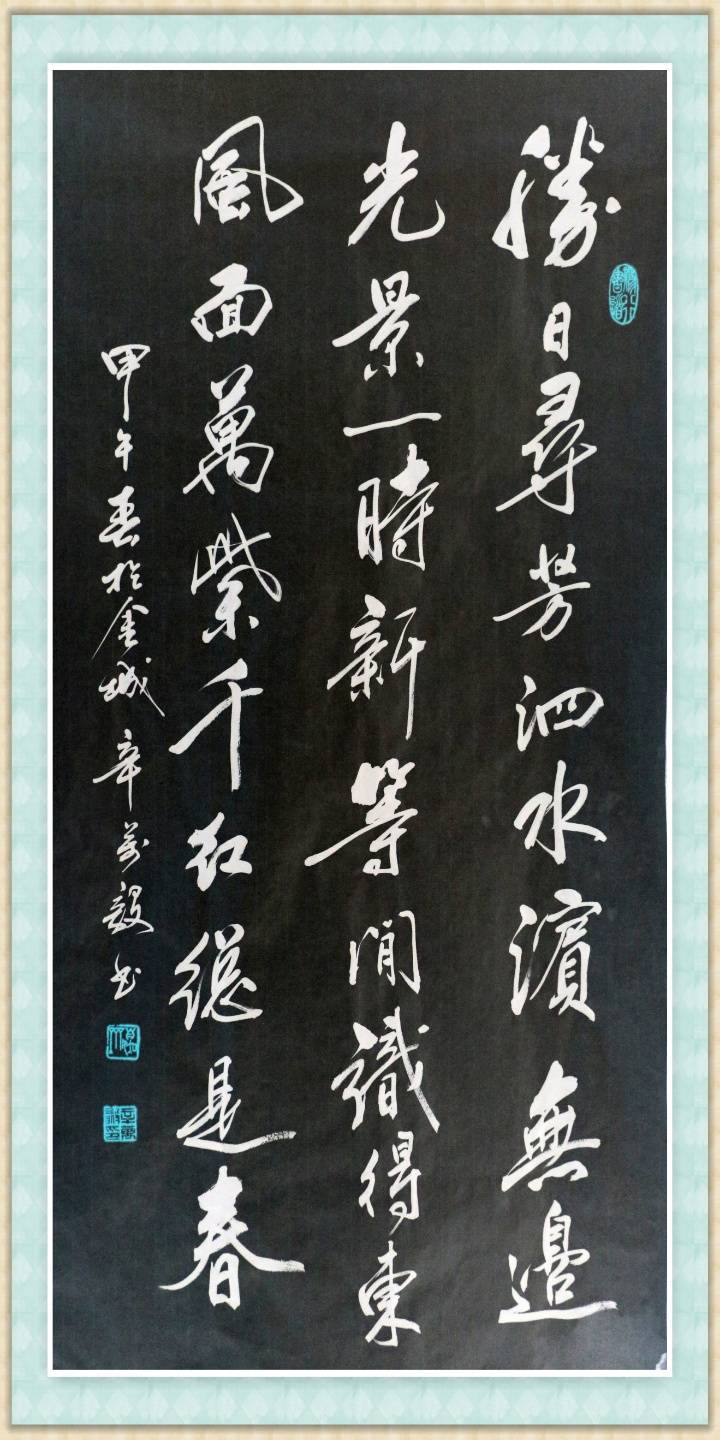 勝日尋芳泗水濱無邊
光景一時新等閒識得東
風面萬紫千红總是春
甲午春於金城辛萬毅书